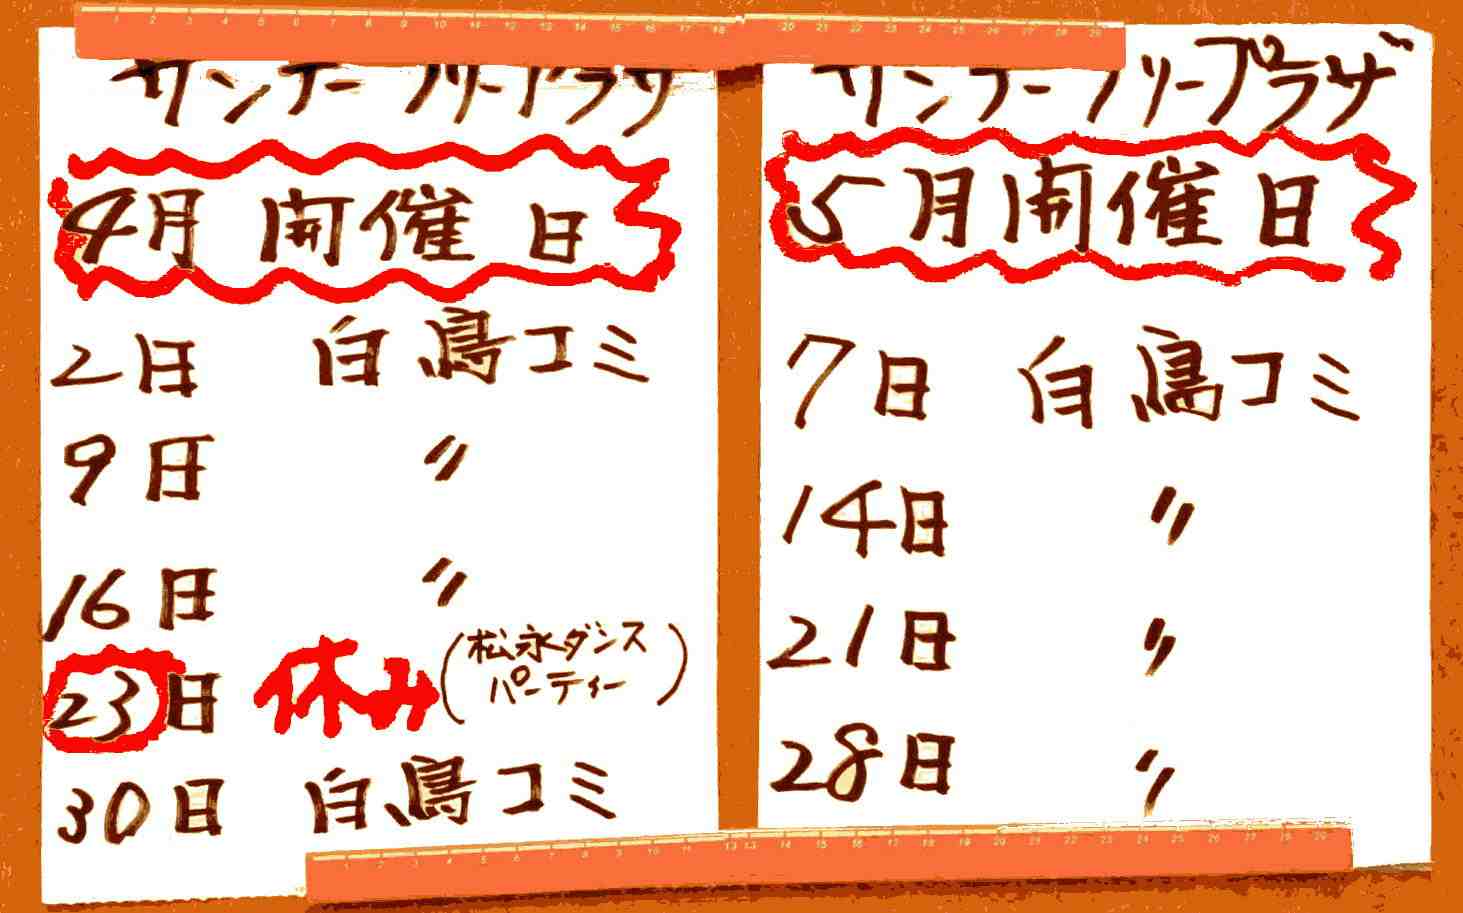 サンデーフリープラザ
4月 開催日
2日 白鳥コミ
9日 〃
16日 〃
23日 休み (松永ダンス
パーティー)
30日 白鳥コミ
サンデーフリープラザ
5月開催日
7日 白鳥コミ
14日 〃
21日 〃
28日 〃